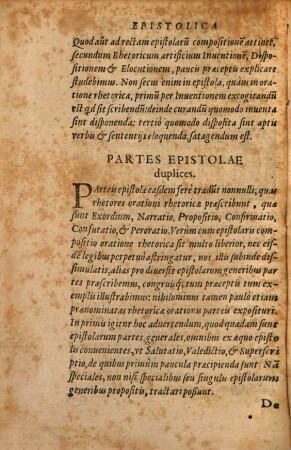 EPISTOLICA
Quod aūt ad rectam epistolarū compositionē attinet,
secundum Rhetoricum artificium Inuentionē, Dispo-
sitionem & Elocutionem, paucis praeceptis explicare
studebimus. Non secus enim in epistola, quàm in ora-
tione rhetorica, primū per Inuentionem excogitandū
est qd sit scribendū: deinde curandū quomodo inuenta
sint disponenda: tertiò quomodo disposita sint aptis
verbis & sententijs eloquenda, satagendum est.
PARTES EPISTOLAE
duplices.
PArteis epistolę easdem ferè tradūt nonnulli, quas
rhetores orationi rhetoricę praescribunt, quę
sunt Exordium, Narratio, Propositio, Confirmatio,
Confutatio, & Peroratio. Verùm cum epistolaris com-
positio oratione rhetorica sit multo liberior, nec eis-
dē legibus perpetuò astringatur, nos illis subinde dis-
simulatis, alias pro diuersis epistolarum generibus partes
praescribemus, congruísq; tum praeceptis tum ex-
emplis illustrabimus: nihilominus tamen paulò etiam
pręnominatas rhetoricę orationis parteis exposituri.
In primis igitur hoc aduertendum, quod quędam sunt
epistolarum partes, generales, omnibus ex aequo episto-
lis conuenientes, vt Salutatio, Valedictio, & Superscri-
ptio, de quibus primùm paucula praecipienda sunt. Nā
speciales, non nisi specialibus seu singulis epistolarum
generibus propositis, tractari possunt.
De